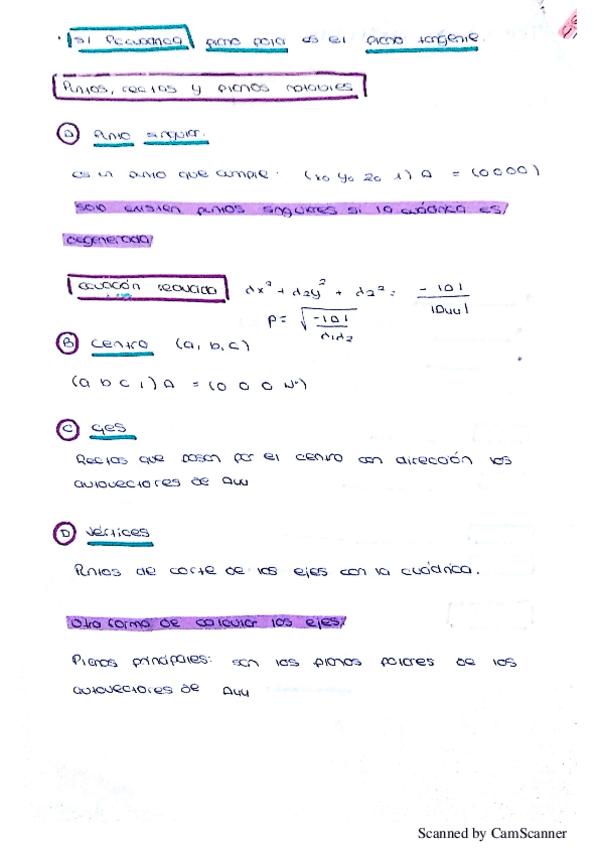 · si P∈cuádrica plano polar es el plano tangente.
Puntos, rectas y planos notables
A Punto singular.
es un punto que cumple: (x0 y0 z0 1) A = (0 0 0 0)
Solo existen puntos singulares si la cuádrica es
degenerada
ecuación reducida λx² + λ2y² + λz² = -|A| / |A44|
P = √(-|A| / λ1λ2)
B Centro (a, b, c)
(a b c 1) A = (0 0 0 Nº)
C ejes
Rectas que pasan por el centro con dirección los
autovectores de A44
D Vértices
Puntos de corte de los ejes con la cuádrica.
Otra forma de calcular los ejes/
Planos principales: son los planos polares de los
autovectores de A44
Scanned by CamScanner